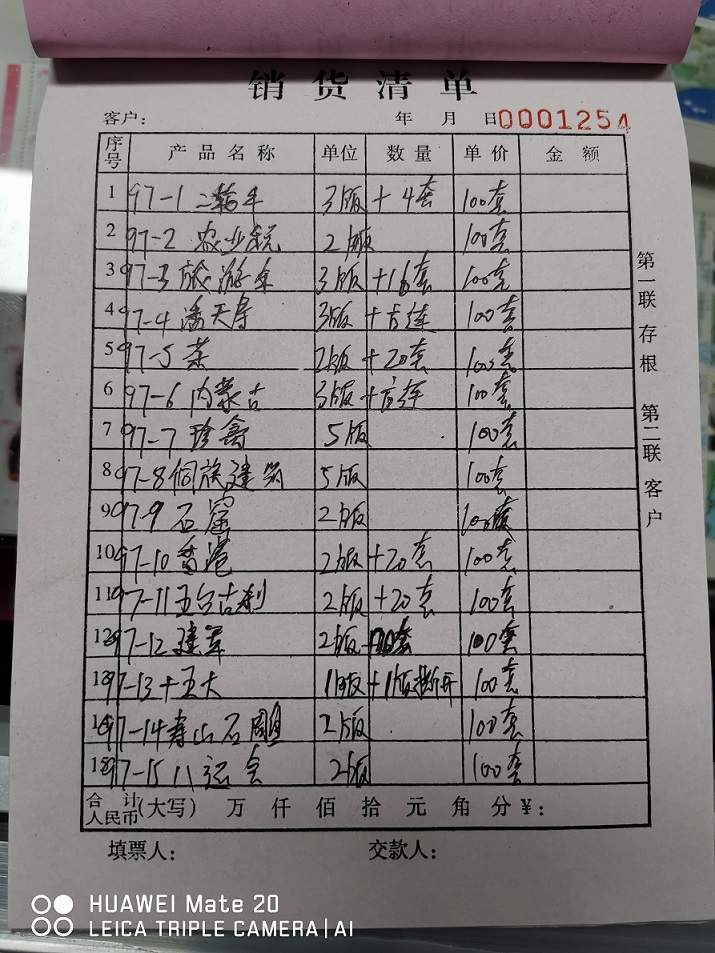 销货清单
客户: 年 月 日 0001254
序号 产品名称 单位 数量 单价 金额
1 97-1 二轮牛 3版 + 4套 100套
2 97-2 农业统 2版 100套
3 97-3 旅游年 3版 +16套 100套
4 97-4 潘天寿 3版 + 方连 100套
5 97-5 茶 2版 + 20套 100套
6 97-6 内蒙古 3版 + 方连 100套
7 97-7 珍禽 5版 100套
8 97-8 侗族建筑 5版 100套
9 97-9 石窟 2版 100套
10 97-10 香港 2版 +20套 100套
11 97-11 五台古刹 2版 +20套 100套
12 97-12 建军 2版 100套
13 97-13 十五大 1版 +1版撕开 100套
14 97-14 寿山石雕 2版 100套
15 97-15 八运会 2版 100套
合计人民币(大写) 万 仟 佰 拾 元 角 分 ¥:
填票人: 交款人:
第一联 存根 第二联 客户
HUAWEI Mate 20
LEICA TRIPLE CAMERA | AI